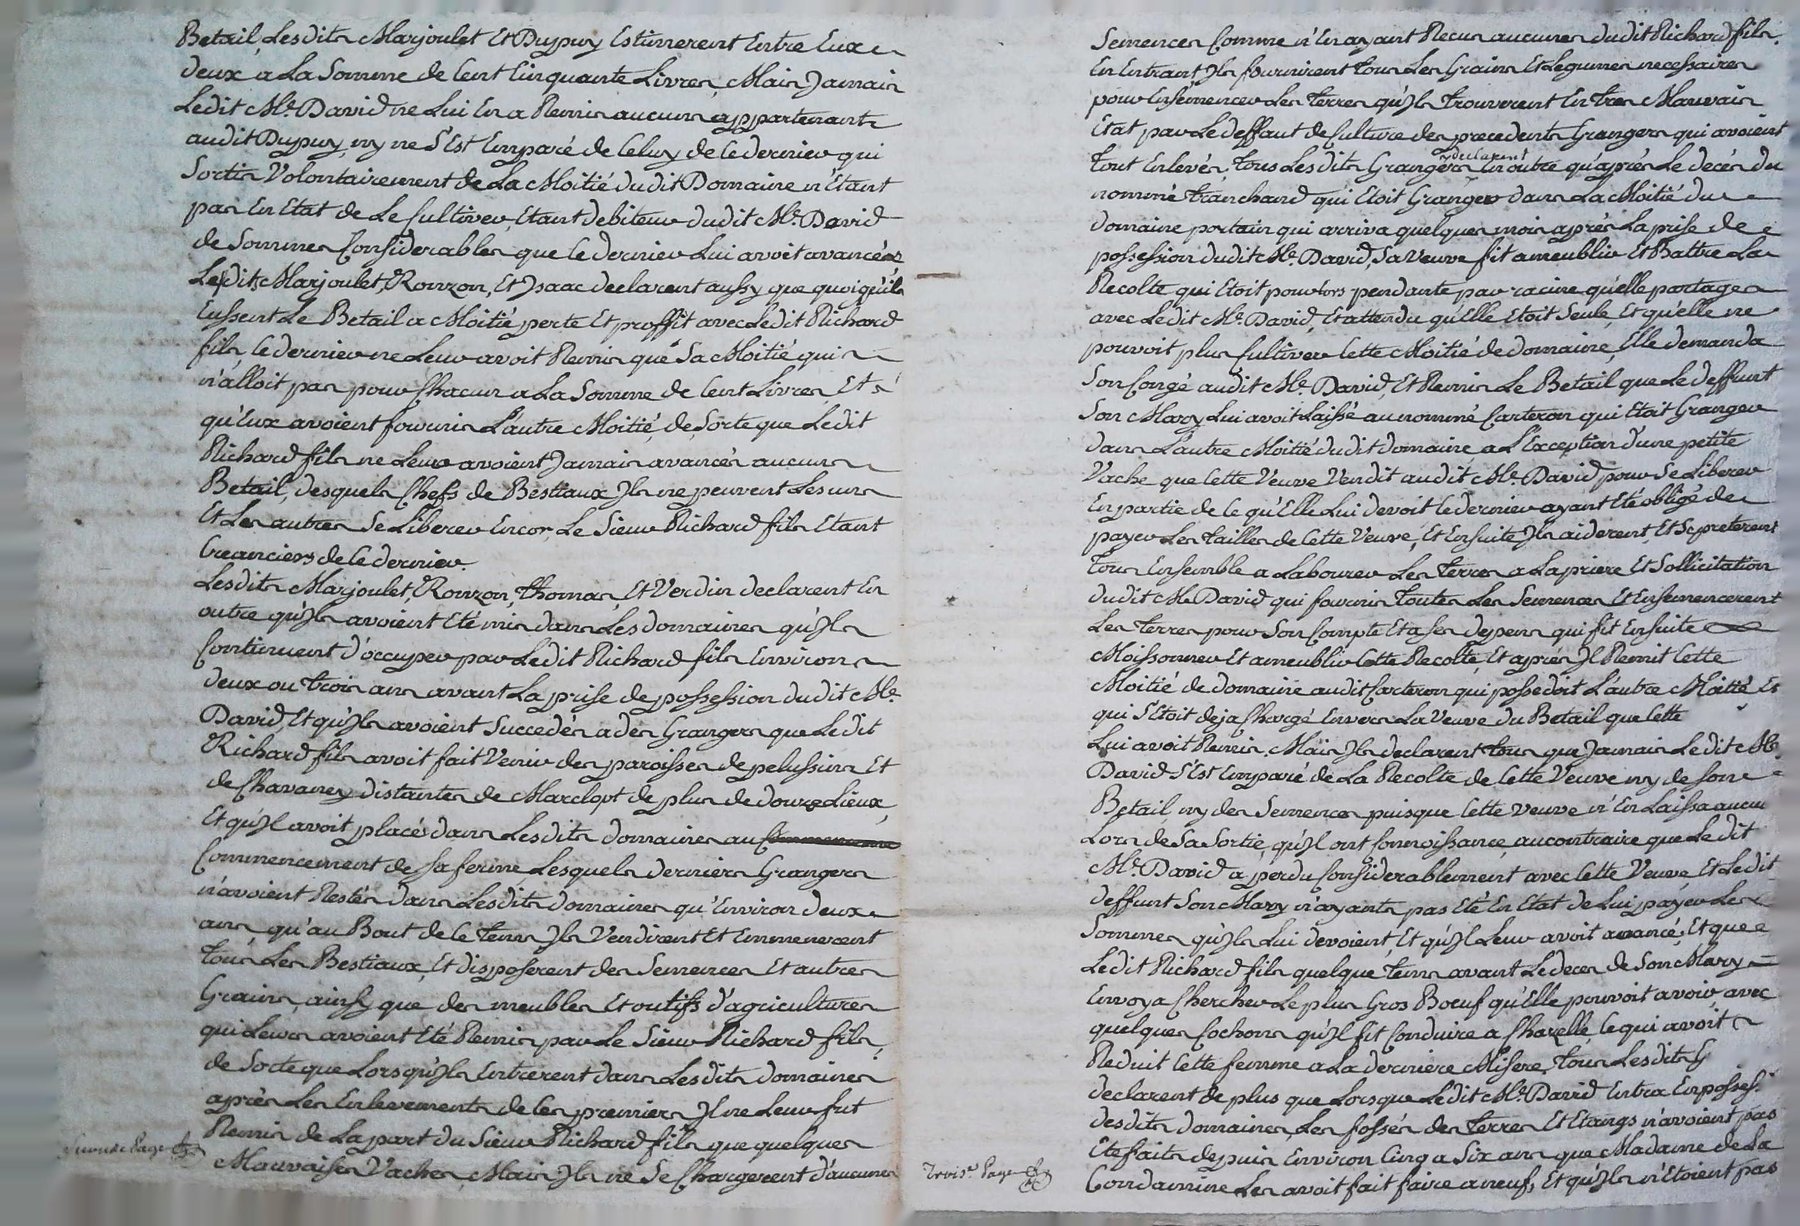 Betail, Lesdits Marjoulet Et Dupuy Estimerent Entre Eux
deux a La Somme de Cent Cinquante Livres, Mais Jamais
Ledit Mr. David ne Lui En a Remis aucuns appartenants
audit Dupuy, ny ne S'Est Emparé de Celuy de Ce dernier qui
Sortit Volontairement de La Moitié dudit Domaine n'Etant
pas En Etat de Le Cultiver, Etant debiteur dudit Mr. David
de Sommes Considerables que Ce dernier Lui avoit avancées
Lesdits Marjoulet, Ronzon, Et Jsaac declarent aussy que quoiqu'ils
Eussent Le Betail a Moitié perte Et proffit avec Ledit Richard
fils, Ce dernier ne Leur avoit Remis que Sa Moitié qui
n'alloit pas pour Chacun a La Somme de Cent Livres Et
qu'Eux avoient fournis L'autre Moitié, de Sorte que Ledit
Richard fils ne Leur avoient Jamais avancés aucuns
Betail, desquels Chefs de Bestiaux Jls ne peuvent Les uns
Et Les autres Se Liberer Encor, Le Sieur Richard fils Etant
Creanciers de Ce dernier.
Lesdits Marjoulet, Ronzon, Thomas, Et Verdin declarent En
outre qu'Jls avoient Eté mis dans Les domaines qu'Jls
Continuent d'occuper par Ledit Richard fils Environs
deux ou trois ans avant La prise de possession dudit Mr.
David, Et qu'Jls avoient Succedés a des Grangers que Ledit
Richard fils avoit fait Venir des paroisses de pelussins Et
de Chavaney distantes de Marclopt de plus de douze Lieux,
Et qu'Jl avoit placés dans Lesdits domaines au Commencement
Commencement de Sa ferme Lesquels derniers Grangers
n'avoient Restés dans Lesdits domaines qu'Environ deux
ans, qu'au Bout de Ce tems Jls Vendirent Et Emmenerent
tous Les Bestiaux, Et disposerent des Semences Et autres
Grains, ainsy que des meubles Et outils d'agricultures
qui Leurs avoient Eté Remis par Le Sieur Richard fils,
de Sorte que Lorsqu'Jls Entrerent dans Lesdits domaines
après Les Enlevements de Ces premiers Jl ne Leur fut
Remis de La part du Sieur Richard fils que quelques
Mauvaises Vaches, Mais Jls ne Se Chargerent d'aucunes
Seconde Page
Semences Comme n'En ayant Recus aucunes dudit Richard fils.
En Entrant Jls fournirent tous Les Grains Et Legumes necessaires
pour Ensemencer Les terres qu'Jls trouverent En tres Mauvais
Etat par Le deffaut de Culture des precedents Grangers qui avoient
tout Enlevés, tous Lesdits Grangers declarent En outre qu'après Le decés du
nommé tranchand qui Etoit Granger dans La Moitié du
domaine portain qui arriva quelques mois après La prise de
possession dudit Mr. David, Sa Veuve fit ameublir Et Battre La
Recolte qui Etoit pour lors pendante par racine qu'elle partagea
avec Ledit Mr. David, Et attendu qu'Elle Etoit Seule, Et qu'elle ne
pouvoit plus Cultiver Cette Moitié de domaine, Elle demanda
Son Congé audit Mr. David, Et Remis Le Betail que Le deffunt
Son Mary Lui avoit Laissé au nommé Carteron qui Etoit Granger
dans L'autre Moitié dudit domaine a L'Exception d'une petite
Vache que Cette Veuve Vendit audit Mr. David pour Se Liberer
En partie de Ce qu'Elle Lui devoit Ce dernier ayant Eté obligé de
payer Les tailles de Cette Veuve, Et Ensuite Jls aiderent, Et Se preterent
tous Ensemble a Labourer Les terres a La priere Et Sollicitation
dudit Mr. David qui fournis toutes Les Semences Et Ensemencerent
Les terres pour Son Compte Et a Ses depens qui fit Ensuite
Moissonner Et ameublir Cette Recolte, Et après Jl Remit Cette
Moitié de domaine audit Carteron qui possedoit L'autre Moitié Et
qui S'Etoit deja Chargé Envers La Veuve du Betail que Cette
Lui avoit Remis. Mais Jls declarent tous que Jamais Ledit Mr.
David S'Est Emparé de La Recolte de Cette Veuve ny de Son
Betail, ny des Semences puisque Cette Veuve n'En Laissa aucun
Lors de Sa Sortie, qu'Jl ont Connoissance au contraire que Ledit
Mr. David a perdu Considerablement avec Cette Veuve, Et Ledit
deffunt Son Mary n'ayants pas Eté En Etat de Lui payer Les
Sommes qu'Jls Lui devoient, Et qu'Jl Leur avoit avancé, Et que
Ledit Richard fils quelque tems avant Le deces de Son Mary
Envoya Chercher Le plus Gros Boeuf qu'Elle pouvoit avoir, avec
quelques Cochons qu'Jl fit Conduire a Chazelle, Ce qui avoit
Reduit Cette femme a La derniere Misere, tous Lesdits G
declarent de plus que Lorsque Ledit Mr. David Entra En possess.
desdits domaines, Les fossés des terres Et Etangs n'avoient pas
Eté faits depuis Environ Cinq a Six ans que Madame de La
Condamine Les avoit fait faire a neuf, Et qu'Jls n'Etoient pas
Trois.e Page